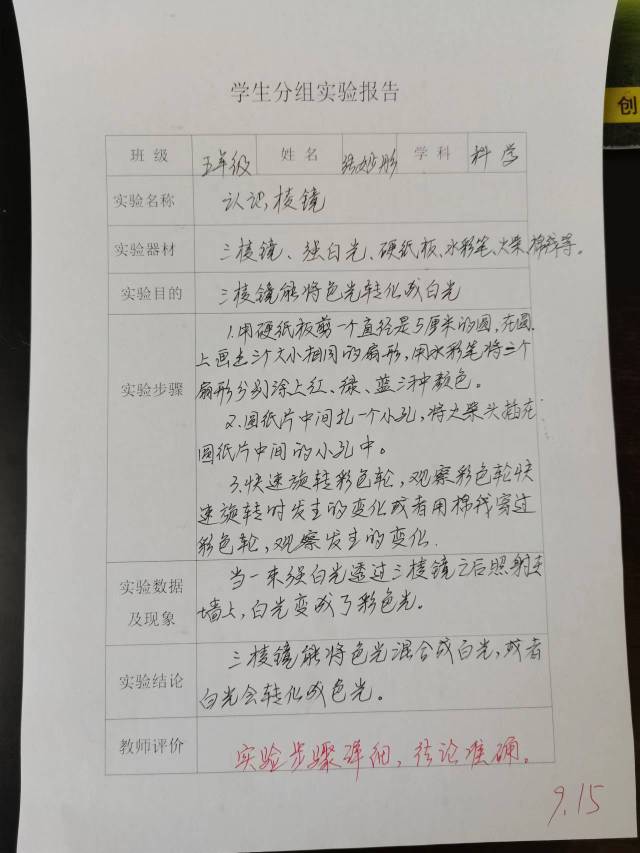 创
学生分组实验报告
班级 五年级 姓名 学科 科学
实验名称 认识棱镜
实验器材 三棱镜、强白光、硬纸板、水彩笔、火柴、棉线等。
实验目的 三棱镜能将色光转化成白光
实验步骤
1.用硬纸板剪一个直径是5厘米的圆,在圆
上画出三个大小相同的扇形,用水彩笔将三个
扇形分别涂上红、绿、蓝三种颜色。
2.圆纸片中间扎一个小孔,将火柴头插在
圆纸片中间的小孔中。
3.快速旋转彩色轮,观察彩色轮快
速旋转时发生的变化或者用棉线穿过
彩色轮,观察发生的变化.
实验数据
及现象
当一束强白光透过三棱镜之后照射到
墙上,白光变成了彩色光。
实验结论
三棱镜能将色光混合成白光,或者
白光会转化成色光。
教师评价 实验步骤详细,结论准确。
9.15